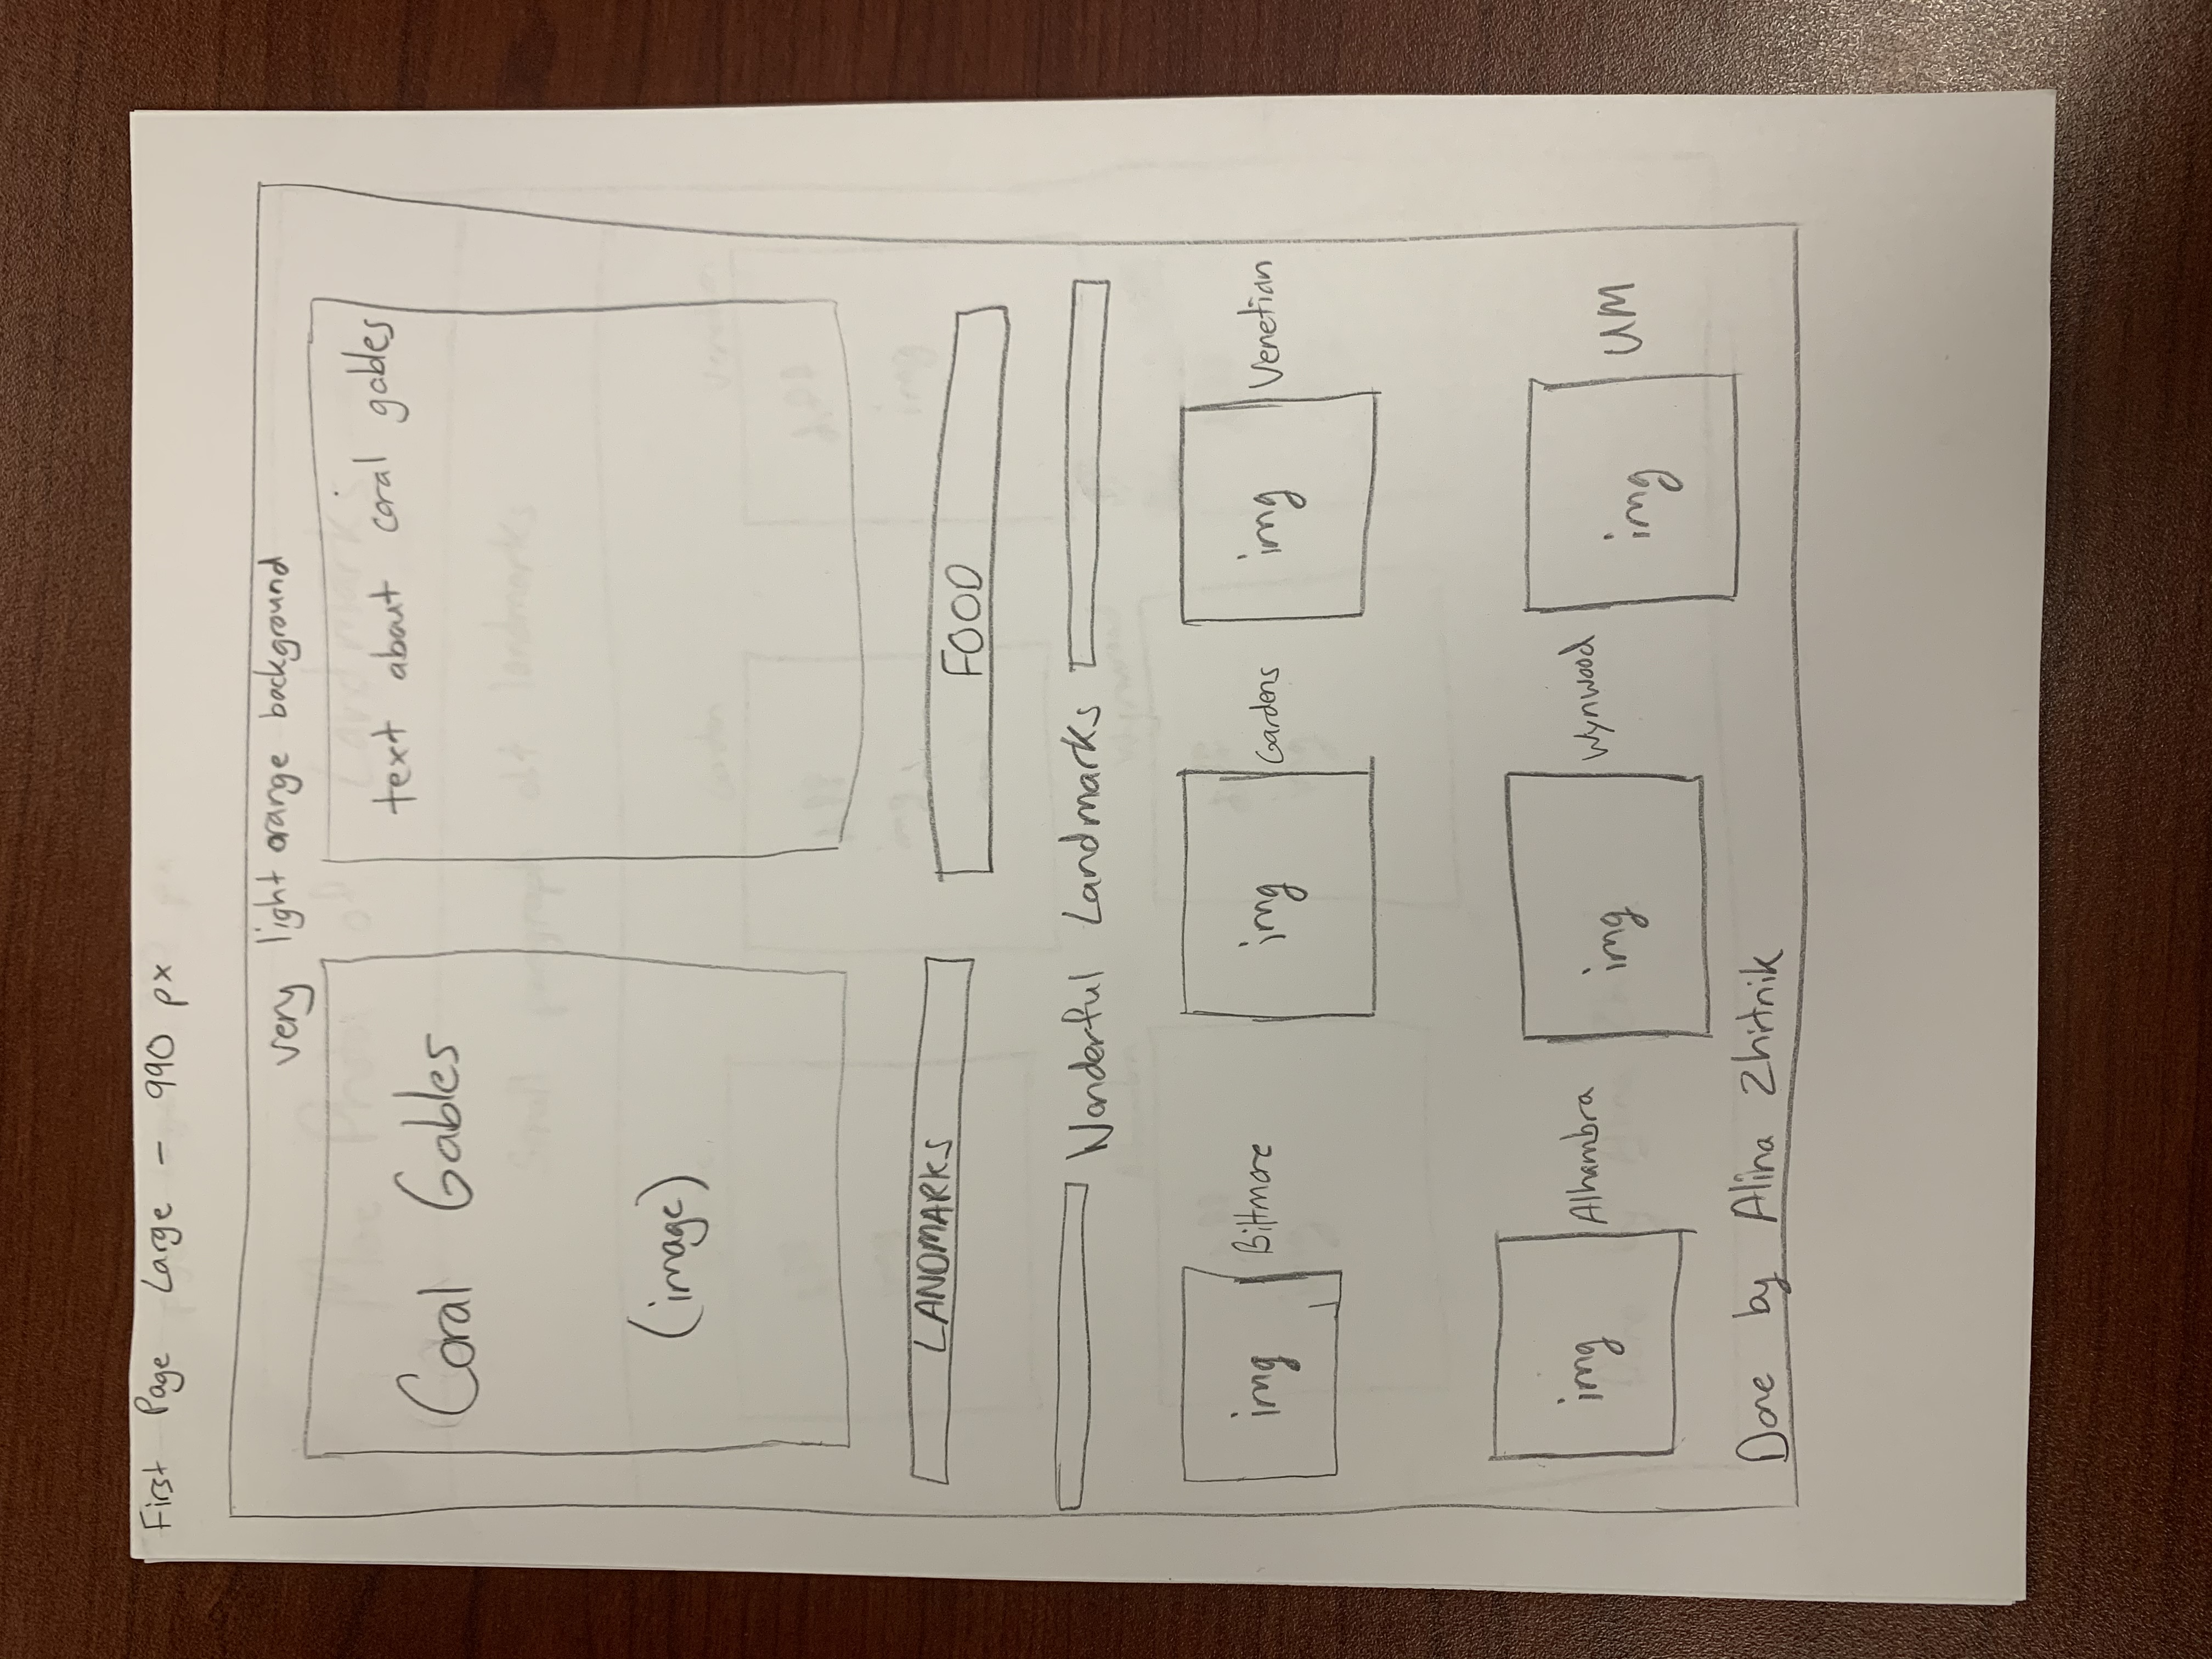 First Page Large – 990 px
very light orange background
Coral Gables
(image)
text about coral gables
LANDMARKS
FOOD
Wonderful Landmarks
img
Biltmore
img
Gardens
img
Venetian
img
Alhambra
img
Wynwood
img
UM
Done by Alina Zhitnik